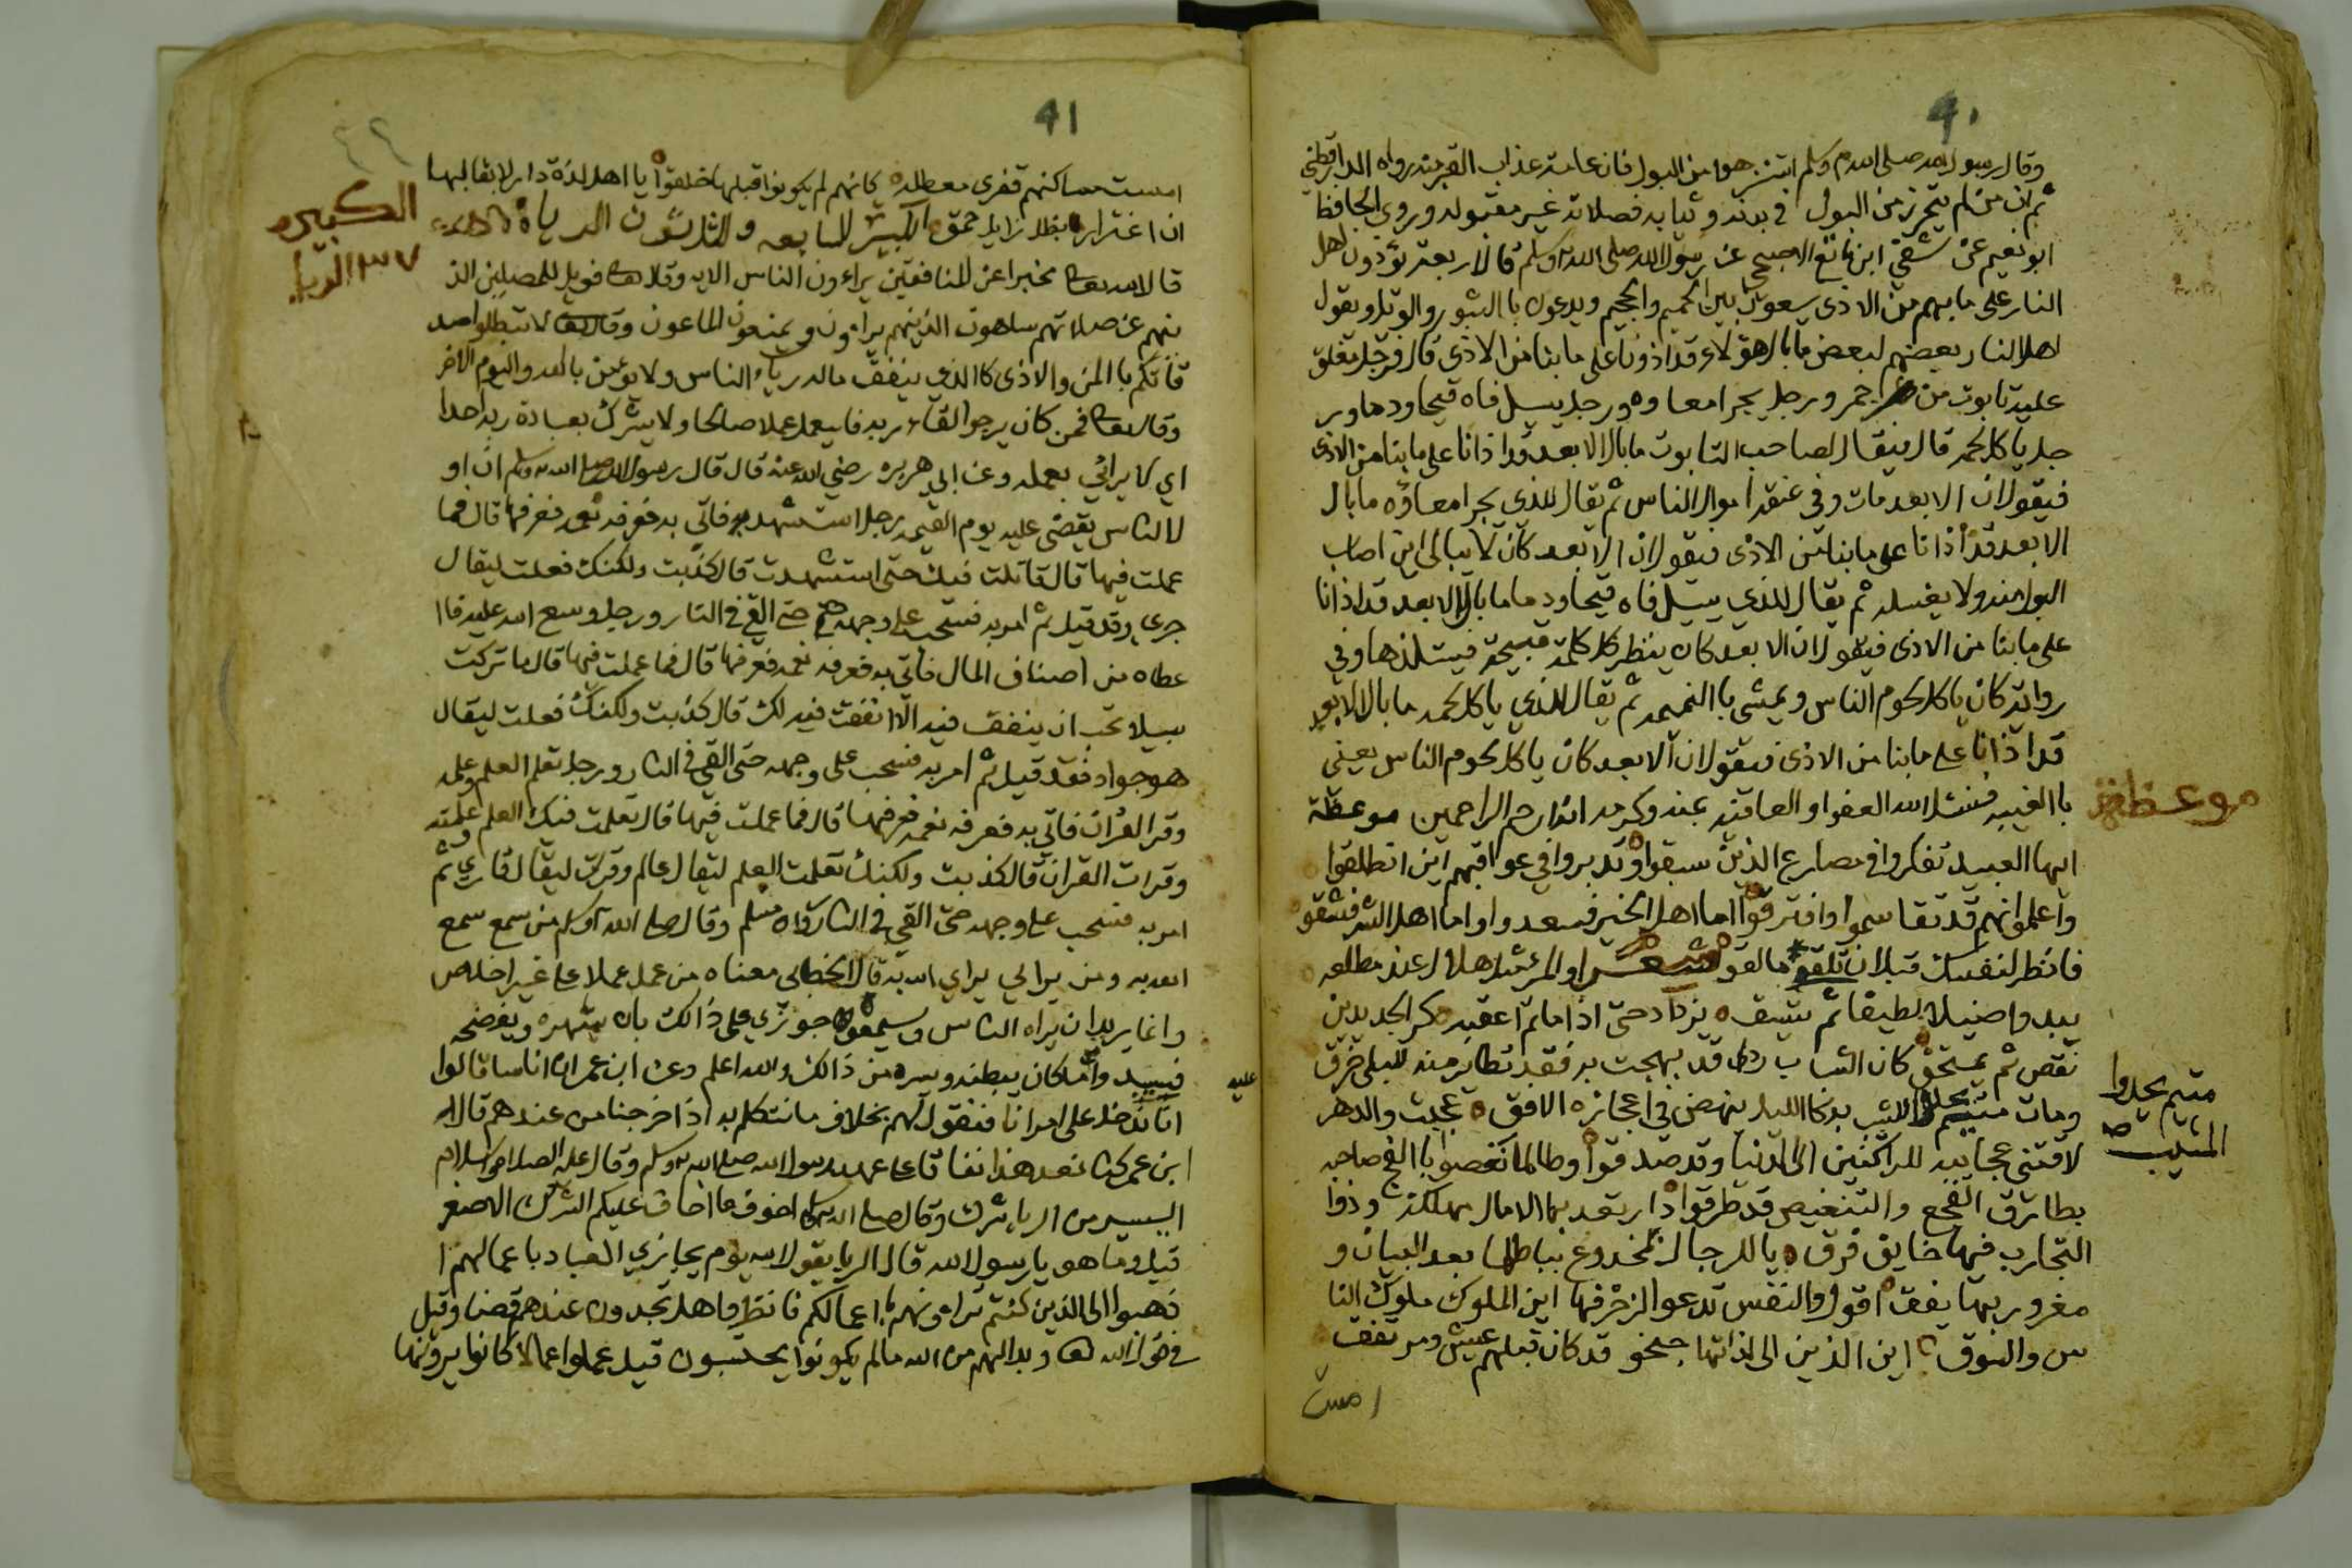 ٩٠
وقال رسول الله صلى الله م وسلم استنزهوا من البول فان عامة عذاب القبر منه رواه الدارقطني
ثم ان من لم يتحرز من البول في بدنه وثيابه فصلاته غير مقبوله وروي الحافظ
ابو نعيم عن شقي ابن ماتع الاصبحي عن رسول الله صلى الله وسلم قال اربعة يؤذون اهل
النار على ما بهم من الاذى يسعون بين الحميم والجحيم ويدعون باالثبور والويل ويقول
اهل النار بعضهم لبعض ما بال هؤلاء قد اذونا على ما بنا من الاذى قال فرجل مغلق
عليه تابوت من جمر ورجل يجر امعاوه ورجل يسيل فاه قيحا ودما ور
جل ياكل لحمه قال فيقال لصاحب التابوت ما بال الابعد قد اذانا على ما بنا من الاذى
فيقول ان الابعد مات وفي عنقه اموال الناس ثم يقال للذي يجر امعاؤه ما بال
الابعد قد أذانا على ما بنا من الاذى فيقول ان الابعد كان لا يبالي اين اصاب
البول منه ولا يغسله ثم يقال للذي يسيل فاه قيحا ودما ما بال الابعد قد اذانا
على ما بنا من الاذى فيقول ان الابعد كان ينظر كل كلمة قبيحة فيستلذها وفي
رواية كان ياكل لحوم الناس ويمشي باالنميمه ثم يقال للذي ياكل لحمه ما بال الابعد
قد اذانا على ما بنا من الاذى فيقول ان الابعد كان ياكل لحوم الناس يعني
باالغيبه فنسئل الله العفو والعافيه بمنه وكرمه انه ارحم الراحمين موعظة
موعظة
ايها العبيد تفكروا في مصارع الذين سبقوا وتدبروا في عواقبهم اين انطلقوا
واعلموا انهم قد تقاسموا وافترقوا اما اهل الخير فسعدوا واما اهل الشر فشقو
فانظر لنفسك قبل ان تلقى ما لقو شعر والمرء مثل هلال عند مطلعه
يبدوا ضئيلا لطيفا ثم يتسق يزداد حتى اذا ما تم اعقبه كر الجديدين
نقص ثم يمتحق كان الشباب ردا قد بهجت به فقد تطاير منه للبلى خرق
ومات مبتسم يحدوا المشيب به كاالليل ينهض في اعجازه الافق عجبت والدهر
متبسم يحدوا
المشيب صح
لا تفنى عجايبه للراكنين الى الدنيا وقد صدقوا وطالما نغصوا باالفجع صاحبه
بطارق الفجع والتنغيص قد طرقوا دار تغد بها الامال مهلكة وذوا
التجارب فيها خايف فرق يا للرجال لمخدوع بباطلها بعد البيان و
مغرور بها يثق اقول والنفس تدعو الزخرفها اين الملوك ملوك النا
س والسوق اين الذين الى لذاتها جنحو قد كان قبلهم عيش ومرتفق
امست
٩١
٤٢
امست مساكنهم قفرى معطله كانهم لم يكونوا قبلها خلقوا يا اهل لذة دار لا بقا لها
ان اغترارا بظل زايل حمق الكبيرة السابعه والثلاثون الرياء
الكبيره
٣٧ الريا
قال الله تعالى مخبرا عن المنافقين يراءون الناس الايه وقال تعالى فويل للمصلين الذ
ينهم عن صلاتهم ساهون الذينهم يراءون ويمنعون الماعون وقال تعالى لا تبطلوا صد
قاتكم باالمن والاذى كاالذي ينفق ماله رياء الناس ولا يؤمن بالله واليوم الاخر
وقال تعالى فمن كان يرجو القاء ربه فاليعمل عملا صالحا ولا يشرك بعبادة ربه احدا
اي لا يرائي بعمله وعن ابي هريره رضي الله عنه قال قال رسول الله صلى الله وسلم ان او
ل الناس يقضى عليه يوم القيمه رجل استشهد فاتي به فعرفه نعمه فعرفها قال فما
عملت فيها قال قاتلت فيك حتى استشهدت قال كذبت ولكنك فعلت ليقال
جرى وقد قيل ثم امر به فسحب على وجهه حتى القي في النار ورجل وسع الله عليه فاا
عطاه من اصناف المال فاتي به فعرفه نعمه فعرفها قال فما عملت فيها قال ما تركت
سبيلا تحب ان ينفق فيه الا انفقت فيه لك قال كذبت ولكنك فعلت ليقال
هو جواد فقد قيل ثم امر به فسحب على وجهه حتى القي في النار ورجل تعلم العلم وعلمه
وقرا القرآن فاتي به فعرفه نعمه فعرفها قال فما عملت فيها قال تعلمت فيك العلم وعلمته
وقرات القران قال كذبت ولكنك تعلمت العلم ليقال عالم وقرات ليقال قاري ثم
امر به فسحب على وجهه حتى القي في النار رواه مسلم وقال صلى الله وسلم من سمع سمع
الله به ومن يرائي يراي الله به قال الخطابي معناه من عمل عملا على غير اخلاص
وانما يريد ان يراه الناس ويسمعوه جوزي على ذالك بان يشهره ويفضحه
فيبدي عليه ما كان يبطنه ويسره من ذالك والله اعلم وعن ابن عمر ان اناسا قالوا
عليه
انا ندخل على امرانا فنقول لهم بخلاف ما نتكلم به اذا خرجنا من عندهم قال
ابن عمر كنا نعد هذا نفاقا على عهد رسول الله صلى الله وسلم وقال عليه الصلاه والسلام
اليسير من الرياء شرك وقال صلى الله وسلم اخوف ما اخاف عليكم الشرك الاصغر
قيل وما هو يا رسول الله قال الريا يقول الله يوم يجازي العباد باعمالهم ا
ذهبوا الى الذين كنتم تراءونهم باعمالكم فانظروا هل تجدون عندهم قضا وقيل
في قول الله تعالى وبدا لهم من الله ما لم يكونوا يحتسبون قيل عملوا اعمالا كانوا يرونها